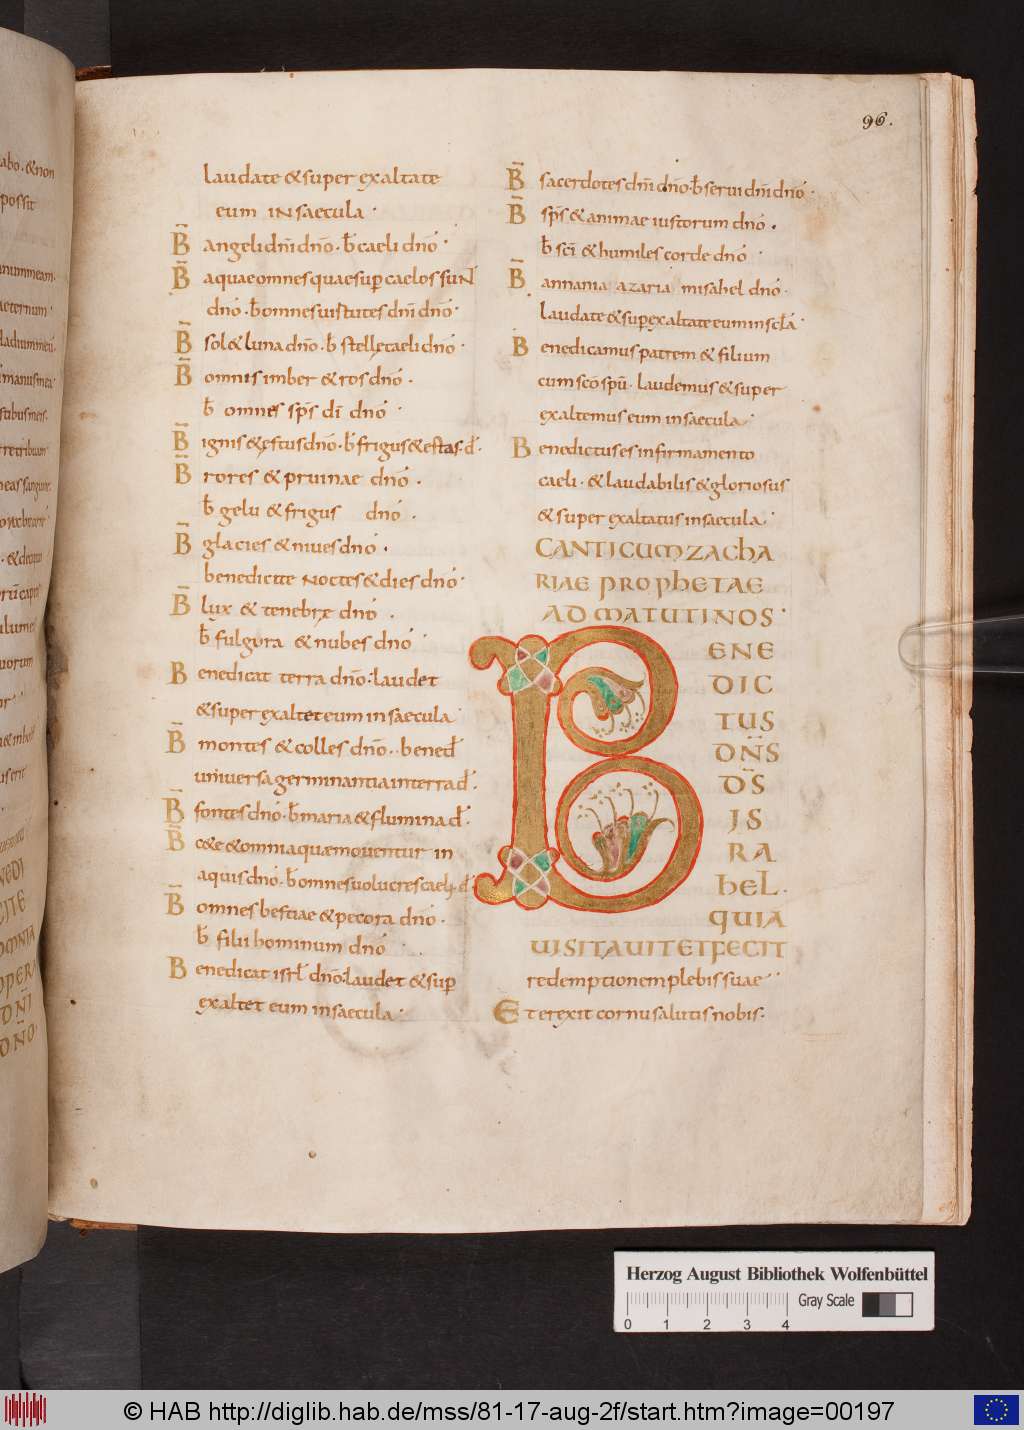 96.
laudate & super exaltate
eum IN saecula.
B̄ angeli dn̄i dn̄o. b̄ caeli dn̄o.
B̄ aquae omnes quae sup̄ caelos suN̄
dn̄o. b̄ omnes uirtutes dn̄i dn̄o.
B̄ sol & luna dn̄o. b̄ stellę caeli dn̄o.
B̄ omnis imber & ros dn̄o.
b̄ omnes sp̄s dī dn̄o.
B̄ ignis & ęstus dn̄o. b̄ frigus & ęstas. d̄.
B̄ rores & pruinae dn̄o.
b̄ gelu & frigus dn̄o.
B̄ glacies & niues dn̄o.
benedicite Noctes & dies dn̄o.
B̄ lux & tenebrę dn̄o.
b̄ fulgora & nubes dn̄o.
B enedicat terra dn̄o: laudet
& super exaltet eum in saecula.
B̄ montes & colles dn̄o. bened̄
uniuersa germinantia in terra d̄.
B̄ fontes dn̄o. b̄ maria & flumina d̄.
B̄ c&e & omnia quae mouentur in
aquis dn̄o. b̄ omnes uolucres caeli. d̄
B̄ omnes bestiae & pecora dn̄o.
b̄ filii hominum dn̄o.
B enedicat isrl̄ dn̄o: laudet & sup̄
exaltet eum in saecula.
B̄ sacerdotes dn̄i dn̄o. b̄ serui dn̄i dn̄o.
B̄ sp̄s & animae iustorum dn̄o.
b̄ scī & humiles corde dn̄o.
B̄ annania azaria misahel dn̄o.
laudate & sup̄ exaltate eum in scl̄a.
B enedicamus patrem & filium
cum scō spū. laudemus & super
exaltemus eum in saecula.
B enedictus es in firmamento
caeli. & laudabilis & gloriosus
& super exaltatus in saecula.
CANTICUM ZACHA
RIAE PROPHETAE
AD MATUTINOS.
B ENE
DIC
TUS
DN̄S
D̄S
IS
RA
HEL.
QUIA
UISITAUIT ET FECIT
redemptionem plebis suae
E t erexit cornu salutis nobis.
Herzog August Bibliothek Wolfenbüttel
Gray Scale
0 1 2 3 4
© HAB http://diglib.hab.de/mss/81-17-aug-2f/start.htm?image=00197